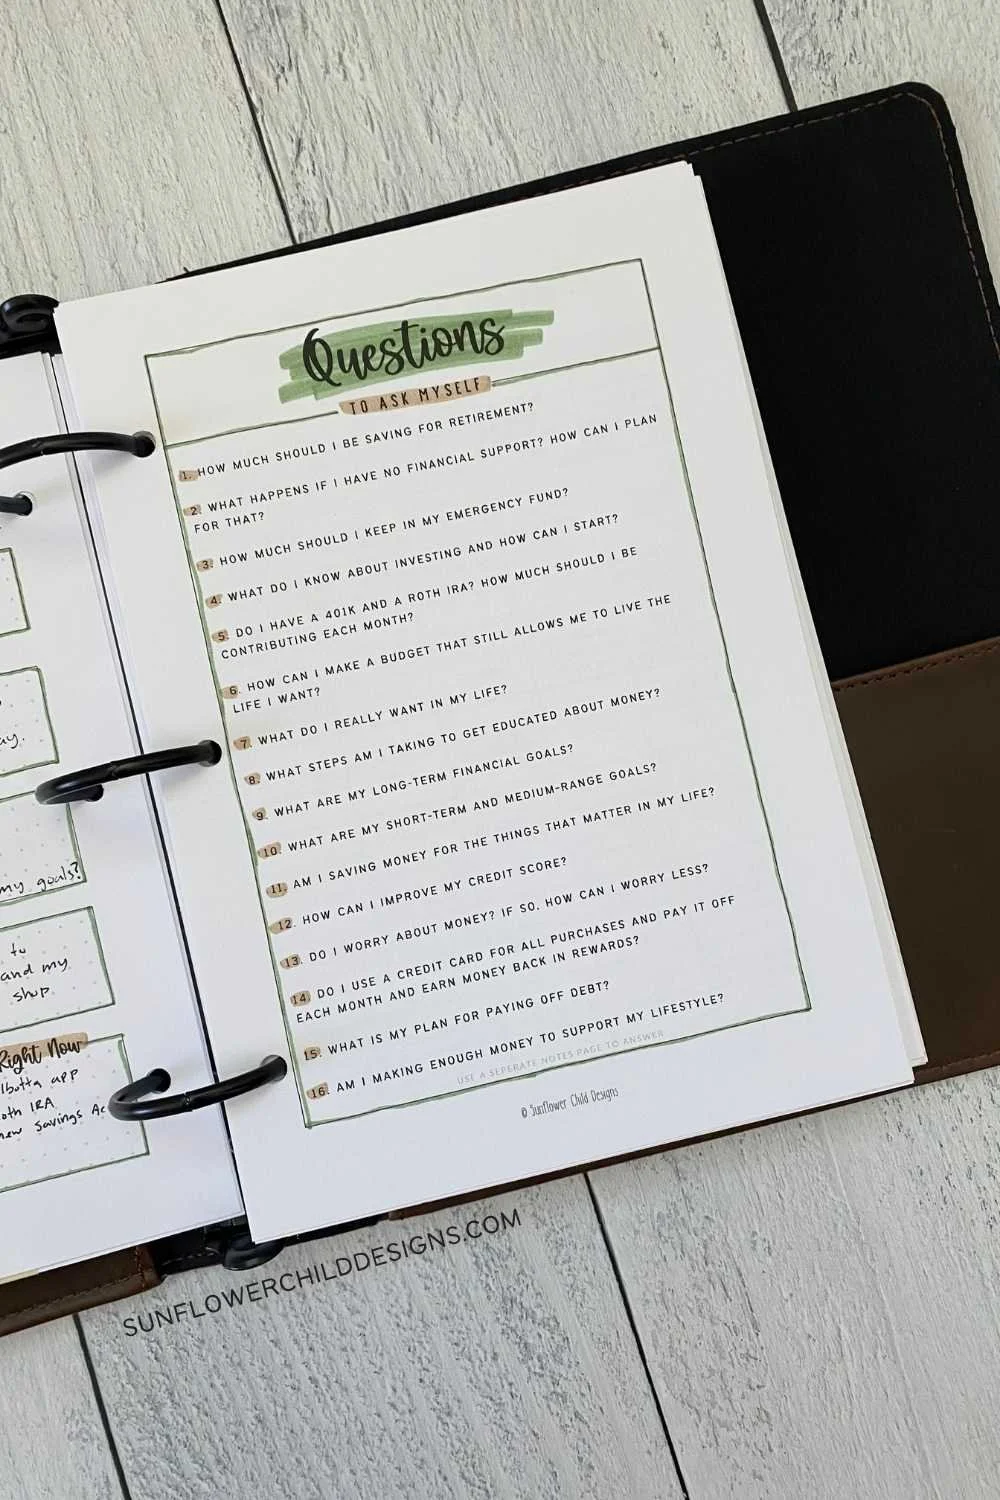 ay.
my goals?
to
and my
shop.
Right Now
Ibotta app
oth IRA
new Savings Ac
Questions
TO ASK MYSELF
1. HOW MUCH SHOULD I BE SAVING FOR RETIREMENT?
2. WHAT HAPPENS IF I HAVE NO FINANCIAL SUPPORT? HOW CAN I PLAN
FOR THAT?
3. HOW MUCH SHOULD I KEEP IN MY EMERGENCY FUND?
4. WHAT DO I KNOW ABOUT INVESTING AND HOW CAN I START?
5. DO I HAVE A 401K AND A ROTH IRA? HOW MUCH SHOULD I BE
CONTRIBUTING EACH MONTH?
6. HOW CAN I MAKE A BUDGET THAT STILL ALLOWS ME TO LIVE THE
LIFE I WANT?
7. WHAT DO I REALLY WANT IN MY LIFE?
8. WHAT STEPS AM I TAKING TO GET EDUCATED ABOUT MONEY?
9. WHAT ARE MY LONG-TERM FINANCIAL GOALS?
10. WHAT ARE MY SHORT-TERM AND MEDIUM-RANGE GOALS?
11. AM I SAVING MONEY FOR THE THINGS THAT MATTER IN MY LIFE?
12. HOW CAN I IMPROVE MY CREDIT SCORE?
13. DO I WORRY ABOUT MONEY? IF SO, HOW CAN I WORRY LESS?
14. DO I USE A CREDIT CARD FOR ALL PURCHASES AND PAY IT OFF
EACH MONTH AND EARN MONEY BACK IN REWARDS?
15. WHAT IS MY PLAN FOR PAYING OFF DEBT?
16. AM I MAKING ENOUGH MONEY TO SUPPORT MY LIFESTYLE?
USE A SEPERATE NOTES PAGE TO ANSWER
© Sunflower Child Designs
SUNFLOWERCHILDDESIGNS.COM